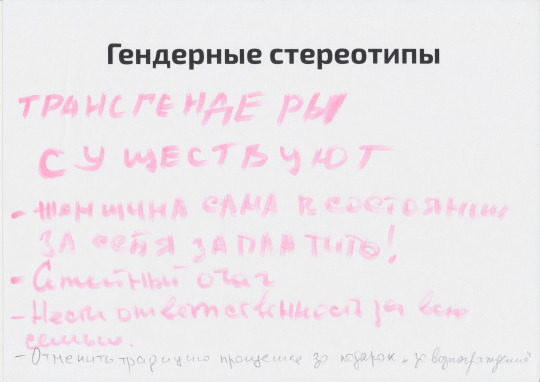 Гендерные стереотипы
ТРАНСГЕНДЕРЫ
СУЩЕСТВУЮТ
- ЖЕНЩИНА САМА В СОСТОЯНИИ
ЗА СЕБЯ ЗАПЛАТИТЬ!
- Семейный очаг
- Нести ответственность за всю
семью.
- Отменить традицию прощение за подарок, за вознаграждение